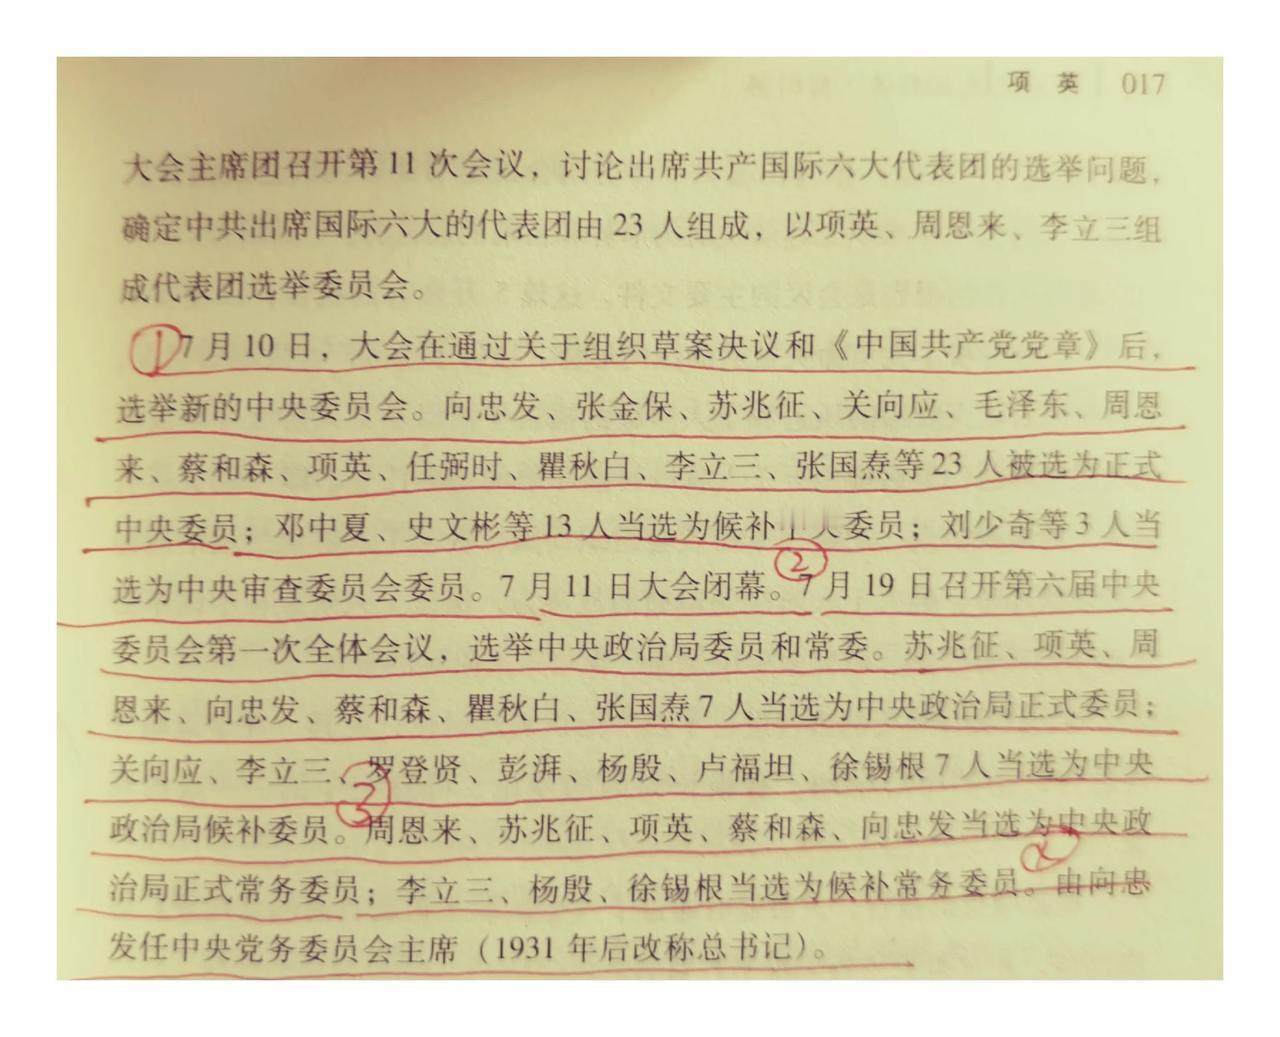 项 英 017
大会主席团召开第 11 次会议，讨论出席共产国际六大代表团的选举问题，
确定中共出席国际六大的代表团由 23 人组成，以项英、周恩来、李立三组
成代表团选举委员会。
①7 月 10 日，大会在通过关于组织草案决议和《中国共产党党章》后，
选举新的中央委员会。向忠发、张金保、苏兆征、关向应、毛泽东、周恩
来、蔡和森、项英、任弼时、瞿秋白、李立三、张国焘等 23 人被选为正式
中央委员；邓中夏、史文彬等 13 人当选为候补 委员；刘少奇等 3 人当
选为中央审查委员会委员。7 月 11 日大会闭幕。②7 月 19 日召开第六届中央
委员会第一次全体会议，选举中央政治局委员和常委。苏兆征、项英、周
恩来、向忠发、蔡和森、瞿秋白、张国焘 7 人当选为中央政治局正式委员；
关向应、李立三、罗登贤、彭湃、杨殷、卢福坦、徐锡根 7 人当选为中央
政治局候补委员。③周恩来、苏兆征、项英、蔡和森、向忠发当选为中央政
治局正式常务委员；李立三、杨殷、徐锡根当选为候补常务委员。由向忠
发任中央党务委员会主席（1931 年后改称总书记）。